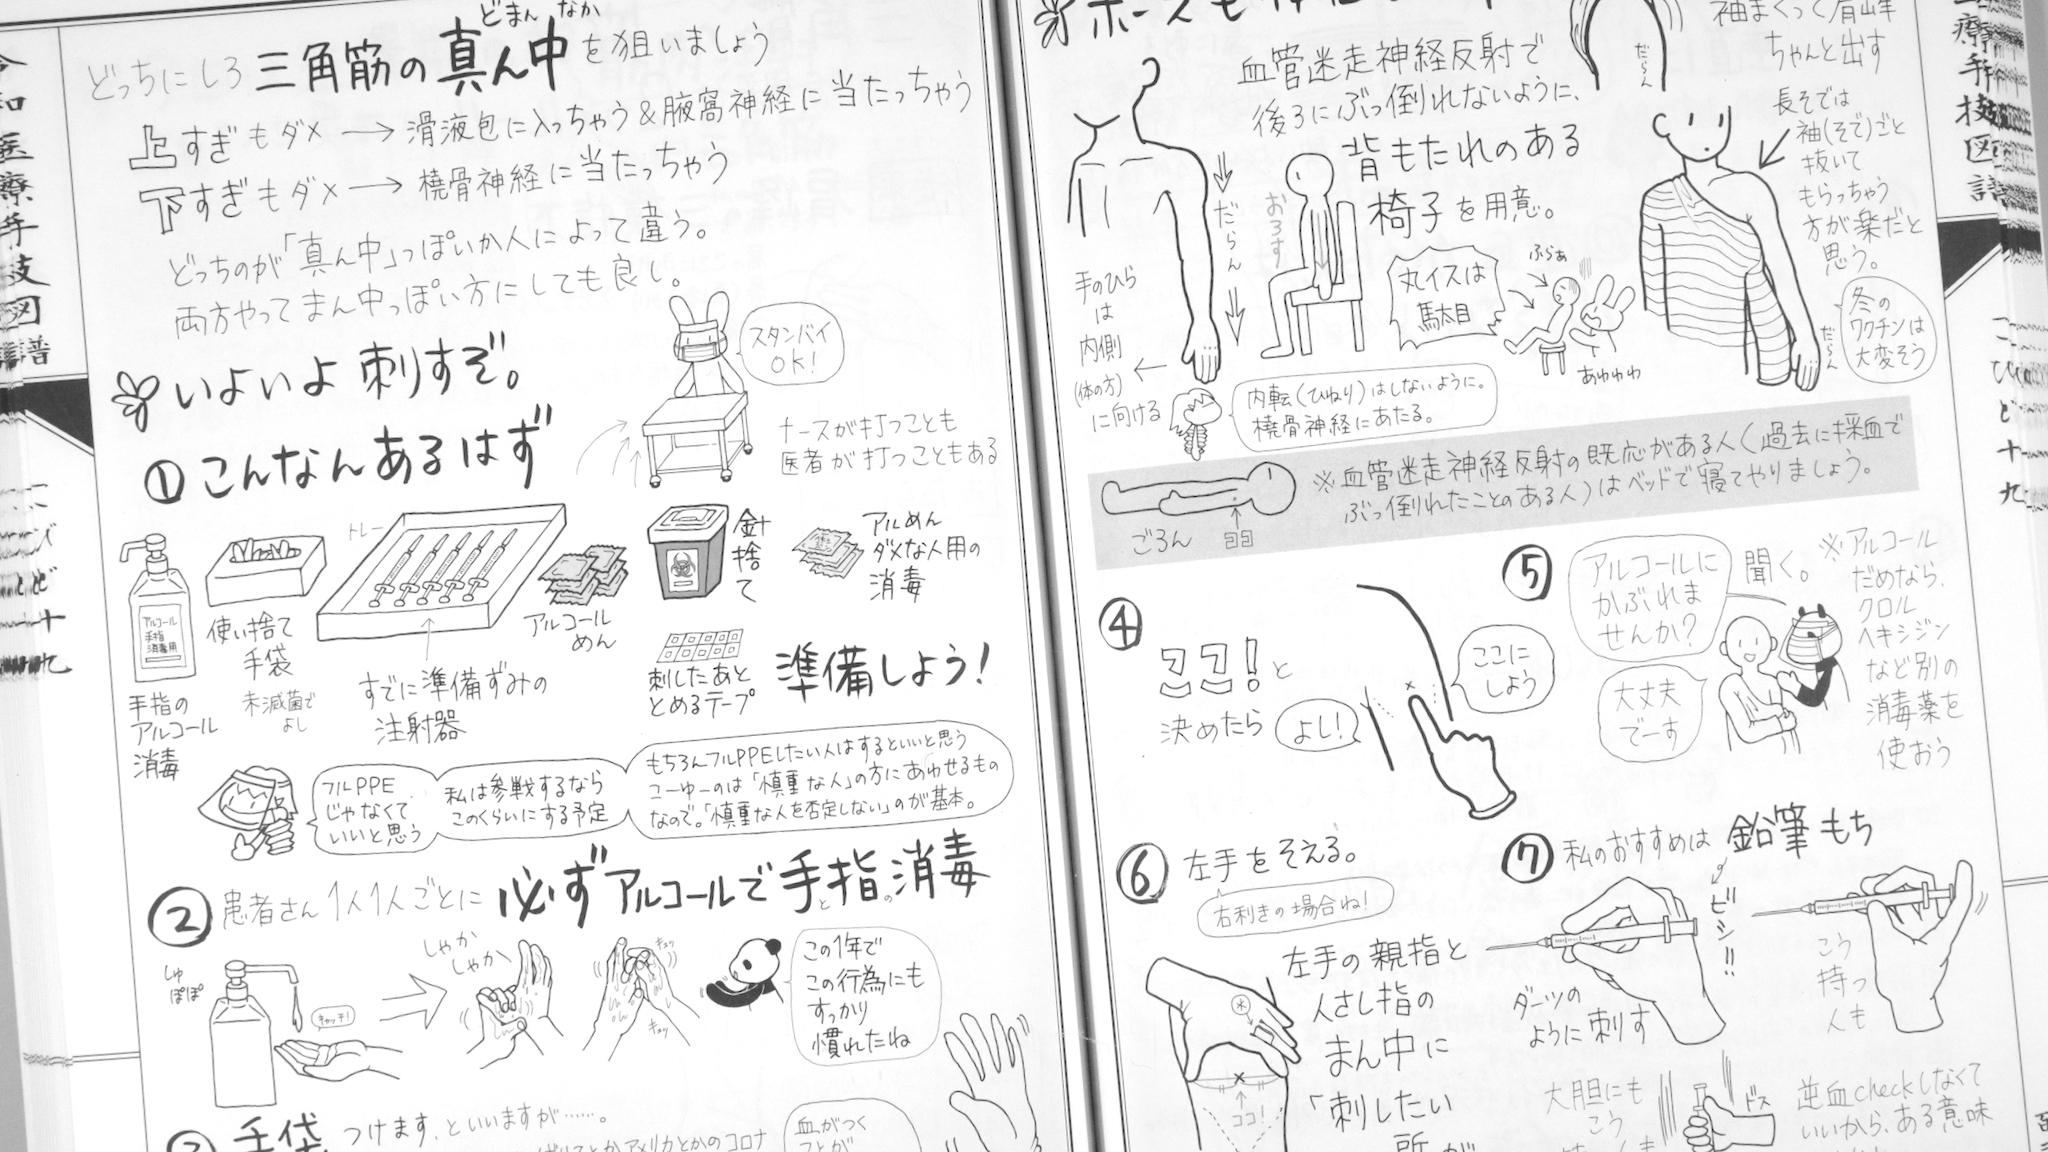 令和医療手技図譜
こびとど十九
どまんなか
どっちにしろ三角筋の真ん中を狙いましょう
上すぎもダメ→滑液包に入っちゃう&腋窩神経に当たっちゃう
下すぎもダメ→橈骨神経に当たっちゃう
どっちのが「真ん中」っぽいか人によって違う。
両方やってまん中っぽい方にしても良し。
いよいよ刺すぞ。
スタンバイ
OK!
①こんなんあるはず
ナースが打つことも
医者が打つこともある
アルコール
手指
消毒用
手指の
アルコール
消毒
使い捨て
手袋
未滅菌で
よし
トレー
すでに準備ずみの
注射器
アルコール
めん
針捨て
アルめん
ダメな人用の
消毒
刺したあと
とめるテープ
準備しよう!
フルPPE
じゃなくて
いいと思う
私は参戦するなら
このくらいにする予定
もちろんフルPPEしたい人はするといいと思う
こーゆーのは「慎重な人」の方にあわせるもの
なので。「慎重な人を否定しない」のが基本。
②患者さん1人1人ごとに必ずアルコールで手と指の消毒
しゅ
ぽぽ
キャッチ!
しゃか
しゃか
キュッ
キュッ
この1年で
この行為にも
すっかり
慣れたね
手袋つけます、といいますが……。
アメリカとかのコロナ
血がつく
ことが
療手技図譜
こびとど十九
血管迷走神経反射で
後ろにぶっ倒れないように、
背もたれのある
椅子を用意。
だらん
おろす
手のひら
は
内側
(体の方)
に向ける
丸イスは
駄目
ふらぁ
あわわわ
内転(ひねり)はしないように。
橈骨神経にあたる。
だらん
袖まくって肩峰
ちゃんと出す
長そでは
袖(そで)ごと
抜いて
もらっちゃう
方が楽だと
思う。
だらん
冬の
ワクチンは
大変そう
※血管迷走神経反射の既応がある人(過去に採血で
ぶっ倒れたことのある人)はベッドで寝てやりましょう。
ごろん
④
ココ!と
決めたら
よし!
ここに
しよう
⑤
アルコールに
かぶれま
せんか?
聞く。
大丈夫
でーす
※アルコール
だめなら、
クロル
ヘキシジン
など別の
消毒薬を
使おう
⑥左手をそえる。
右利きの場合ね!
左手の親指と
人さし指の
まん中に
「刺したい
所が
ココ!
⑦私のおすすめは鉛筆もち
ビシ!!
ダーツの
ように刺す
こう
持つ
人も
大胆にも
こう
ドス
逆血checkしなくて
いいから、ある意味